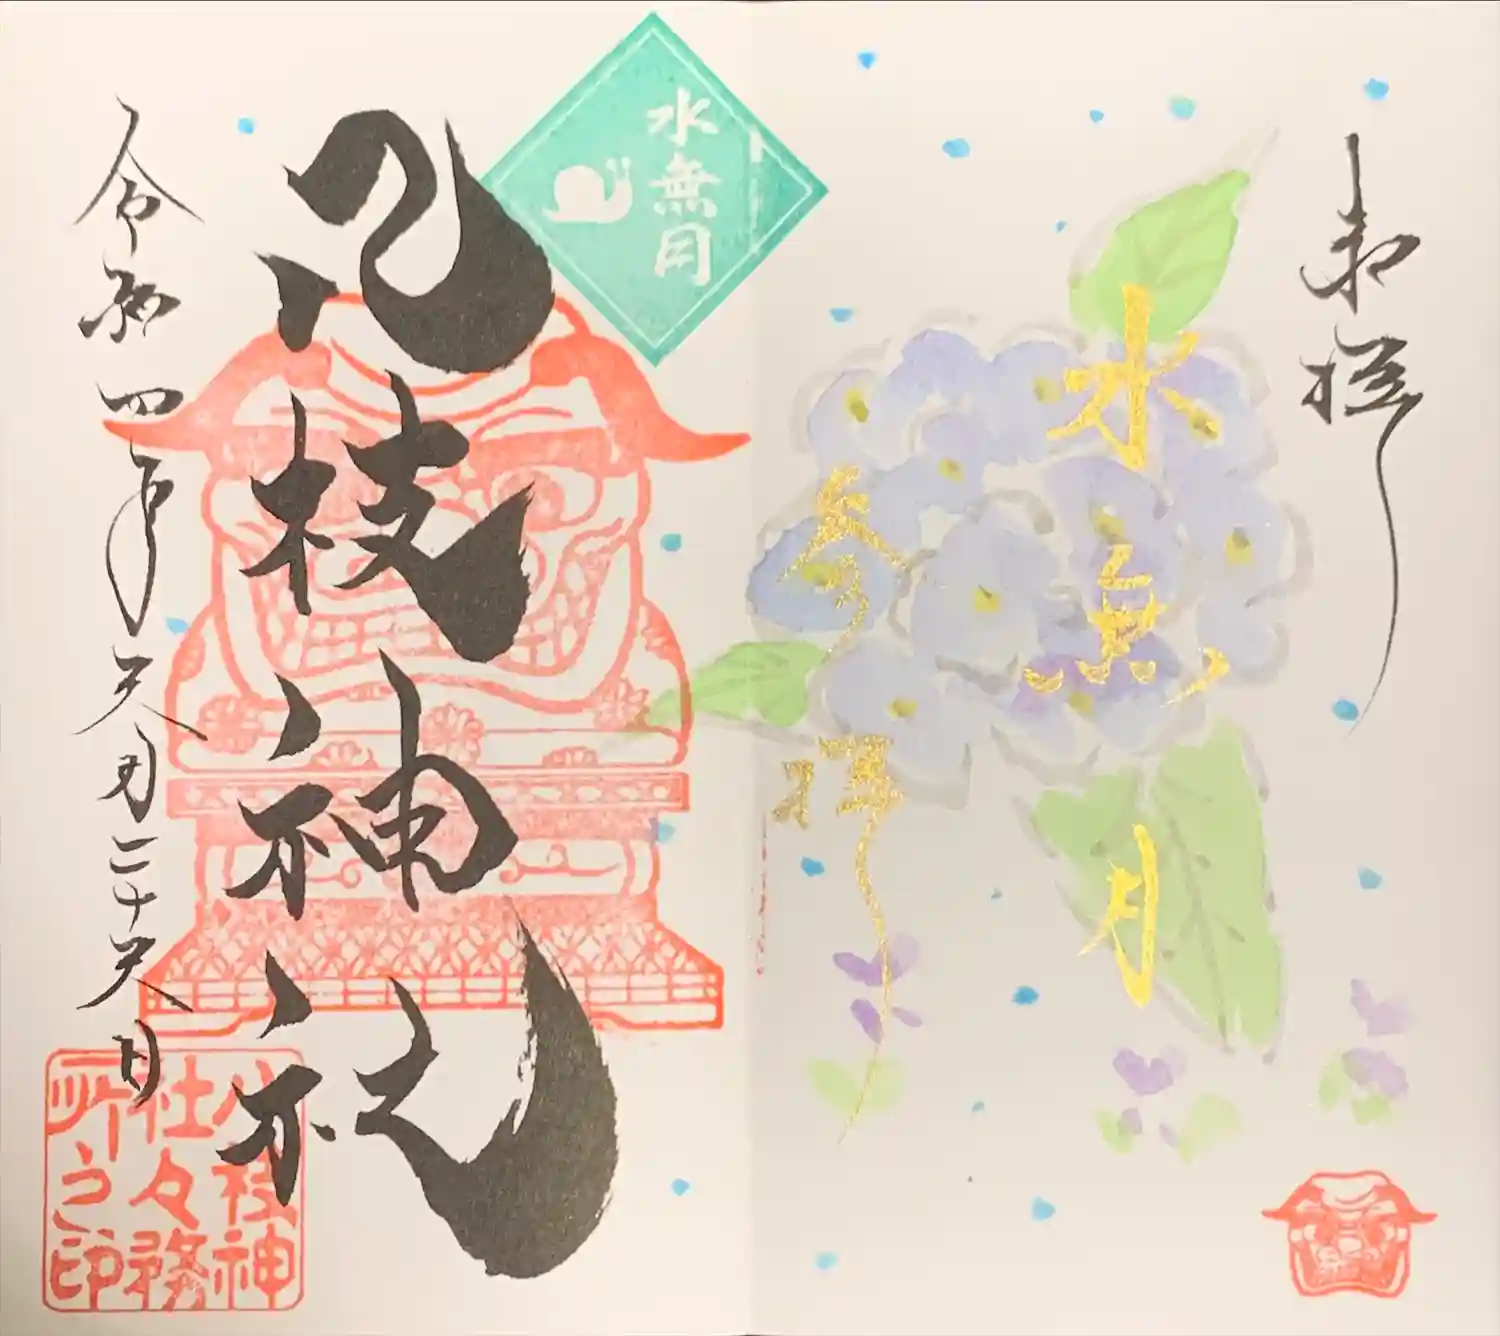 奉拝
水無月
参拝
水無月
八枝神社
令和四年六月二十六日
八枝神
社々務
所之印